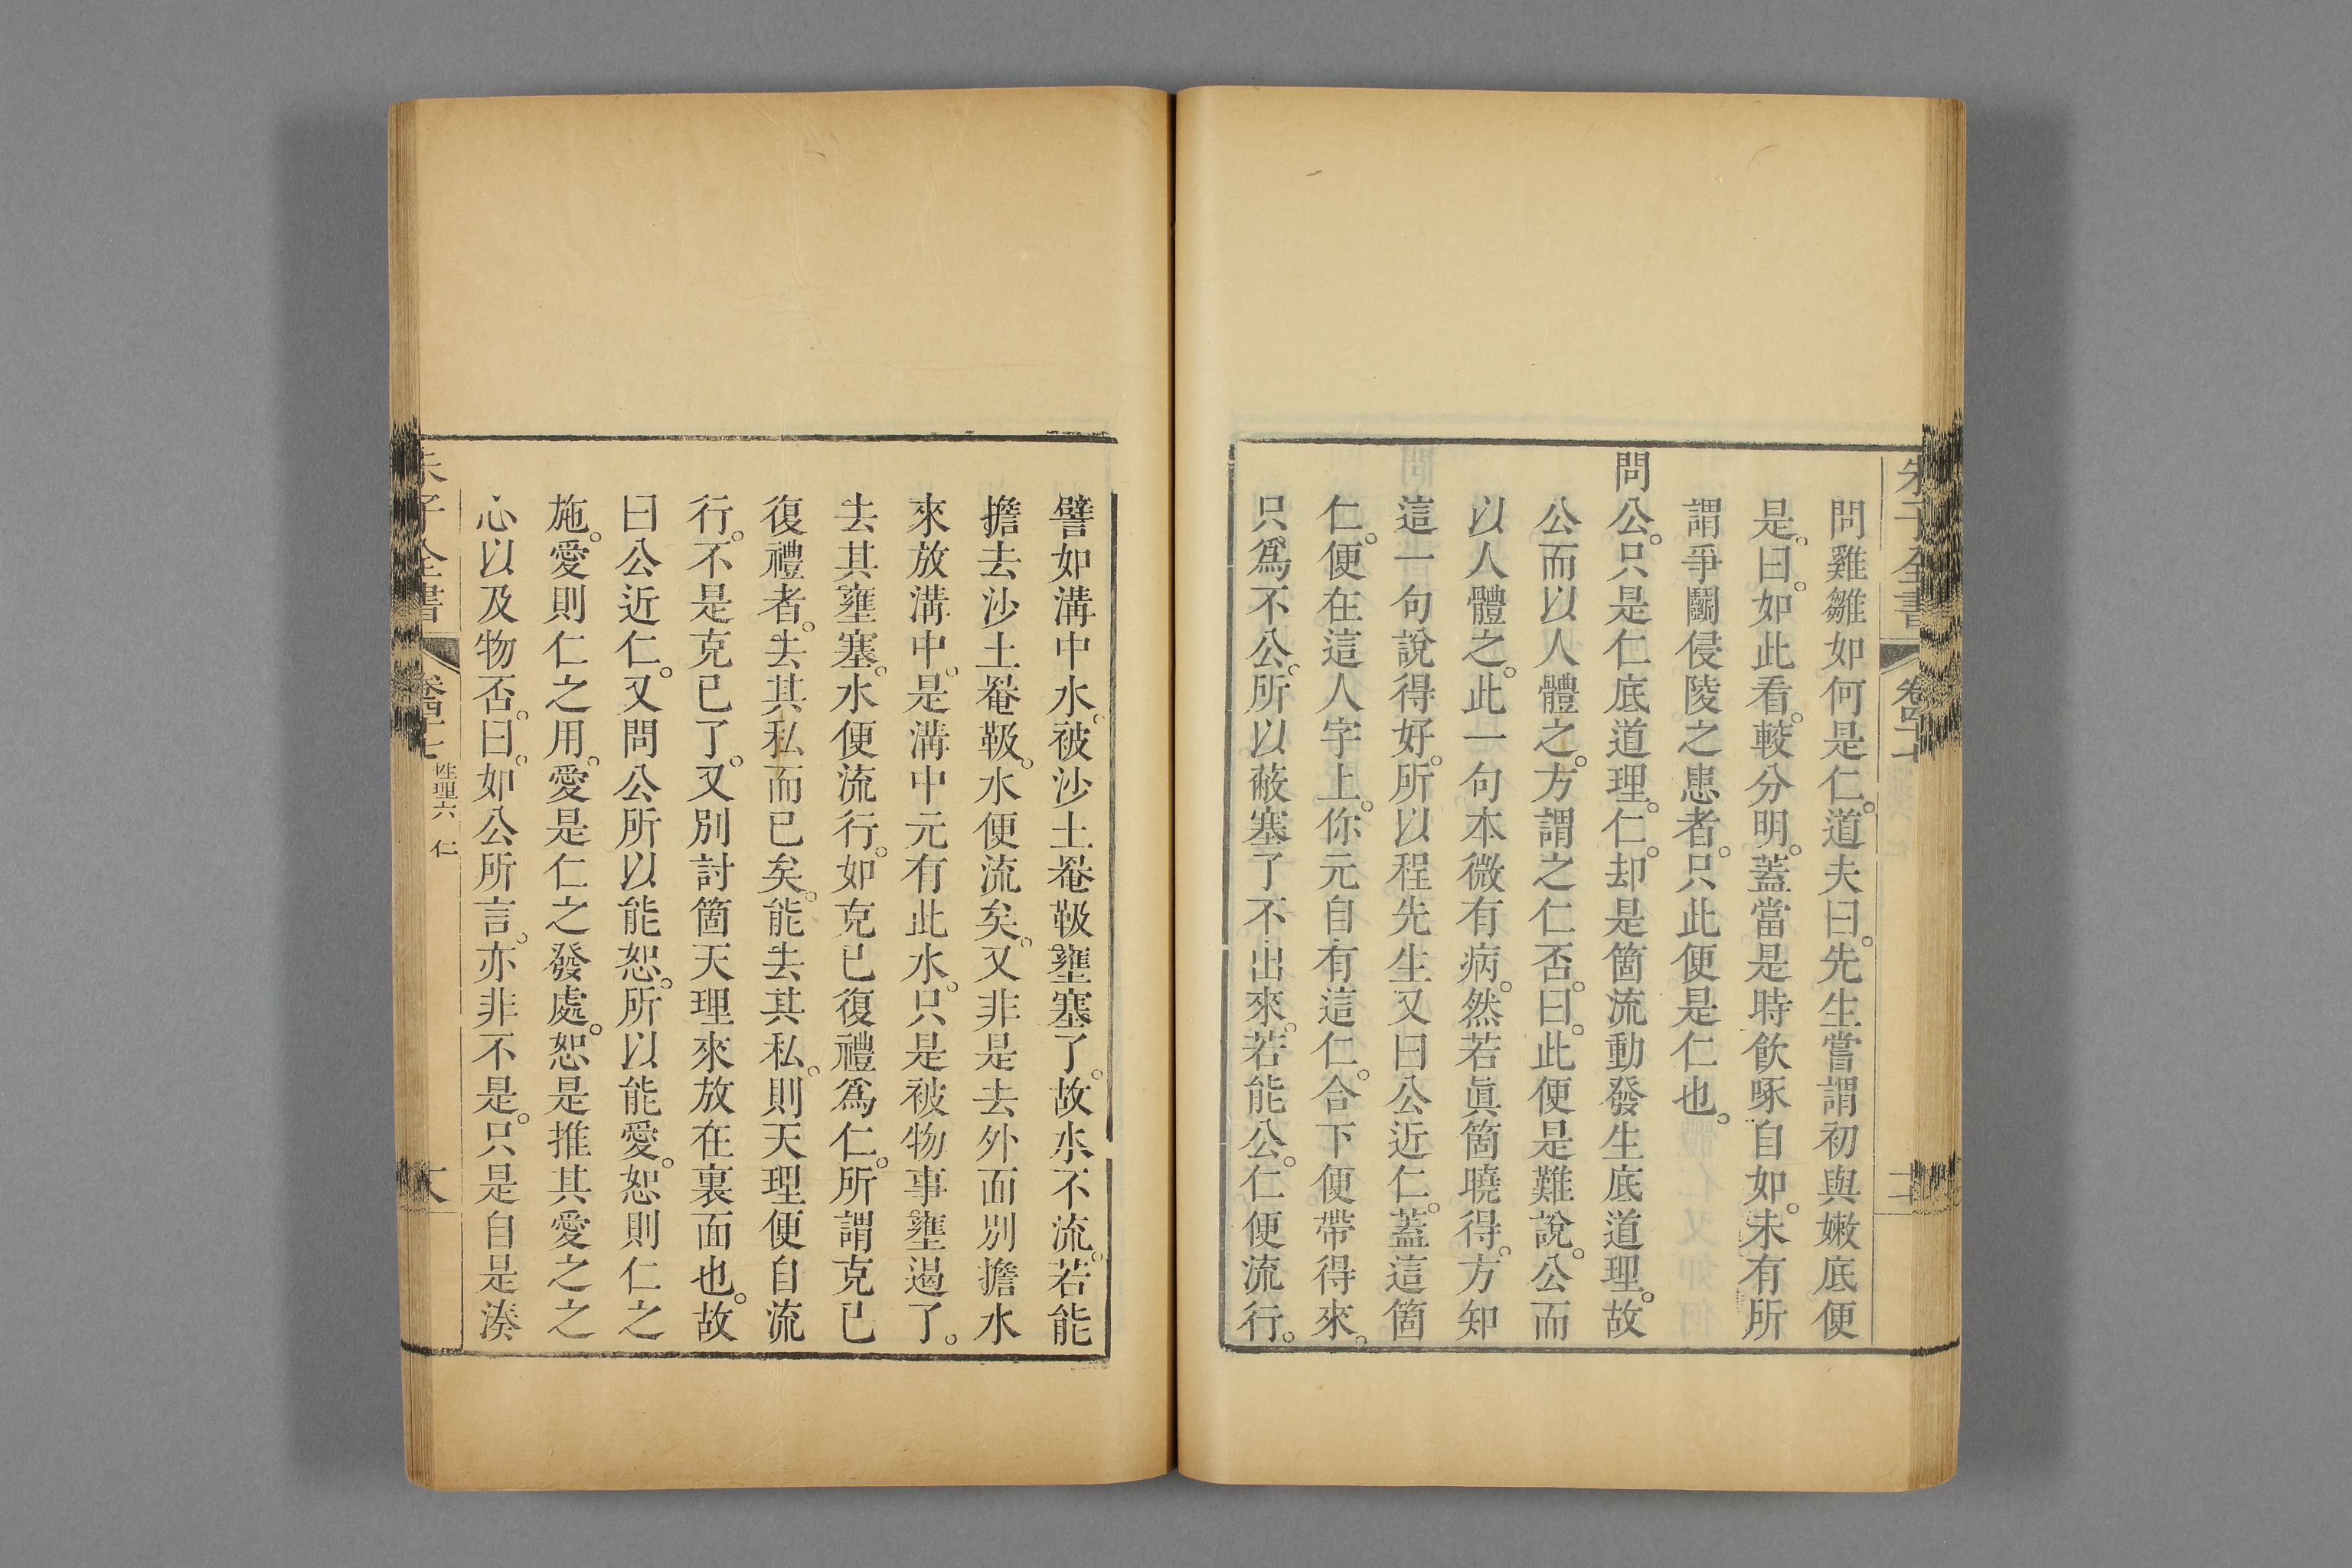 朱子全書 卷四十七
問雞雛如何是仁。道夫曰。先生嘗謂初與嫩底便
是。曰。如此看。較分明。蓋當是時飲啄自如。未有所
謂爭鬭侵陵之患者。只此便是仁也。
問公。只是仁底道理。仁。却是箇流動發生底道理。故
公而以人體之。方謂之仁否。曰。此便是難說。公而
以人體之。此一句本微有病。然若眞箇曉得。方知
這一句說得好。所以程先生又曰公近仁。蓋這箇
仁。便在這人字上。你元自有這仁。合下便帶得來。
只爲不公。所以蔽塞了不出來。若能公。仁便流行。
譬如溝中水。被沙土罨靸壅塞了。故水不流。若能
擔去沙土罨靸。水便流矣。又非是去外面別擔水
來放溝中。是溝中元有此水。只是被物事壅遏了。
去其壅塞。水便流行。如克已復禮爲仁。所謂克已
復禮者。去其私而已矣。能去其私。則天理便自流
行。不是克已了。又別討箇天理來放在裏面也。故
曰公近仁。又問公所以能恕。所以能愛。恕則仁之
施。愛則仁之用。愛是仁之發處。恕是推其愛之之
心以及物否。曰。如公所言。亦非不是。只是自是湊
朱子全書 卷四十七 性理六 仁